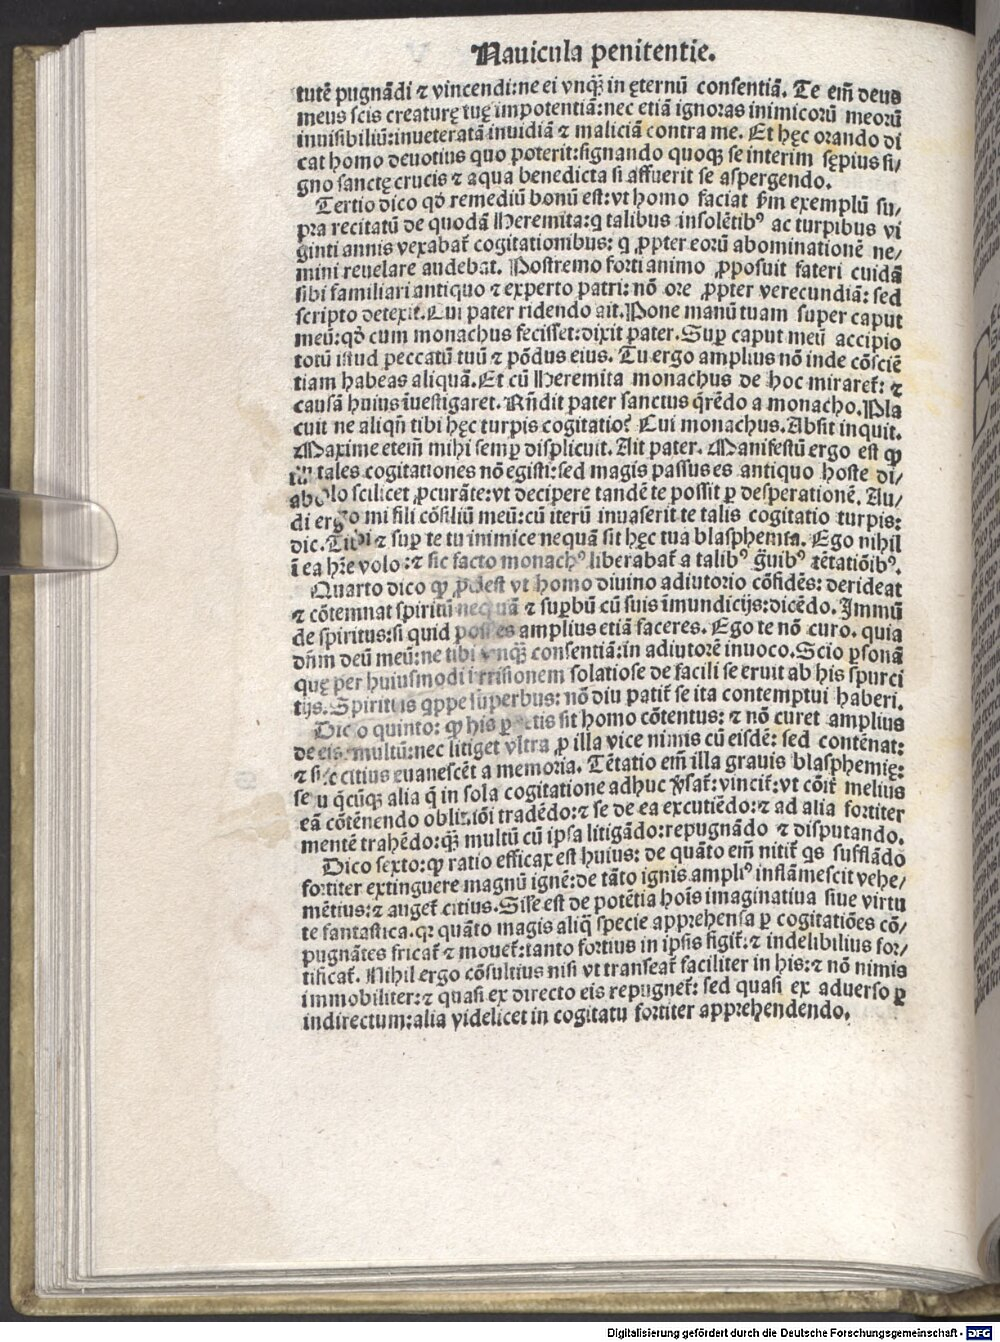 Nauicula penitentie.
tutē pugnādi ⁊ vincendi:ne ei vnqꝫ in ęternū consentiā. Te em̄ deus
meus scis creaturę tuę impotentiā:nec etiā ignoras inimicorū meorū
inuisibiliū:inueteratā inuidiā ⁊ maliciā contra me. Et hęc orando di
cat homo deuotius quo poterit:signando quoqꝫ se interim sępius si/
gno sanctę crucis ⁊ aqua benedicta si affuerit se aspergendo.
Tertio dico qđ remediū bonū est:vt homo faciat ẜm exemplū su/
pra recitatū de quodā Heremita:q̇ talibus insolētibꝰ ac turpibus vi
ginti annis vexabat̄ cogitationibus: q̇ ꝓpter eorū abominationē ne/
mini reuelare audebat. Postremo forti animo ꝓposuit fateri cuidā
sibi familiari antiquo ⁊ experto patri: nō ore ꝓpter verecundiā: sed
scripto detexit. Cui pater ridendo ait. Pone manū tuam super caput
meū:qđ cum monachus fecisset:dixit pater. Suꝑ caput meū accipio
totū istud peccatū tuū ⁊ pōdus eius. Tu ergo amplius nō inde cōsciē
tiam habeas aliquā. Et cū Heremita monachus de hoc miraret̄: ⁊
causā huius īuestigaret. Rn̄dit pater sanctus q̄rēdo a monacho. Pla
cuit ne aliqn̄ tibi hęc turpis cogitatio? Cui monachus. Absit inquit.
Maxime etem̄ mihi semꝑ displicuit. Ait pater. Manifestū ergo est ꝙ
tales cogitationes nō egisti:sed magis passus es antiquo hoste di/
abolo scilicet ꝓcurāte:vt decipere tandē te possit ꝑ desperationē. Au/
di ergo mi fili cōsiliū meū:cū iterū inuaserit te talis cogitatio turpis:
dic. Tibi ⁊ suꝑ te tu inimice nequā sit hęc tua blasphemia. Ego nihil
ī ea hr̄e volo:⁊ sic facto monachꝰ liberabat̄ a talibꝰ g̈uibꝰ tētatiōibꝰ.
Quarto dico ꝙ ꝓdest vt homo diuino adiutorio cōfidēs: derideat
⁊ cōtemnat spiritū nequā ⁊ suꝑbū cū suis īmundicijs:dicēdo. Immū
de spiritus:si quid posses amplius etiā faceres. Ego te nō curo. quia
dn̄m deū meū:ne tibi vnqꝫ consentiā:in adiutorē inuoco. Scio ꝑsonā
quę per huiusmodi irrisionem solatiose de facili se eruit ab his spurci
tijs. Spiritus q̇ppe superbus: nō diu patit̄ se ita contemptui haberi.
Dico quinto: ꝙ his sit homo cōtentus: ⁊ nō curet amplius
de eis multū:nec litiget vltra ꝓ illa vice nimis cū eisdē: sed contēnat:
⁊ sic citius euanescēt a memoria. Tētatio em̄ illa grauis blasphemię:
seu q̄cūqꝫ alia q̄ in sola cogitatione adhuc v̓sat̄: vincit̄:vt cōit̄ melius
eā cōtēnendo obliuiōi tradēdo:⁊ se de ea excutiēdo:⁊ ad alia fortiter
mentē trahēdo:qꝫ multū cū ipsa litigādo:repugnādo ⁊ disputando.
Dico sexto:ꝙ ratio efficax est huius: de quāto em̄ nitit̄ q̇s sufflādo
fortiter extinguere magnū ignē:de tāto ignis ampliꝰ inflāmescit vehe/
mētius:⁊ auget̄ citius. Sisse est de potētia hoīs imaginatiua siue virtu
te fantastica. qꝛ quāto magis aliq̄ specie apprehensa ꝑ cogitatiōes cō/
pugnātes fricat̄ ⁊ mouet̄:tanto fortius in ipsis figit̄:⁊ indelibilius for/
tificat̄. Nihil ergo cōsultius nisi vt transeat̄ faciliter in his:⁊ nō nimis
immobiliter:⁊ quasi ex directo eis repugnet̄: sed quasi ex aduerso ꝑ
indirectum:alia videlicet in cogitatu fortiter apprehendendo.
Digitalisierung gefördert durch die Deutsche Forschungsgemeinschaft - DFG